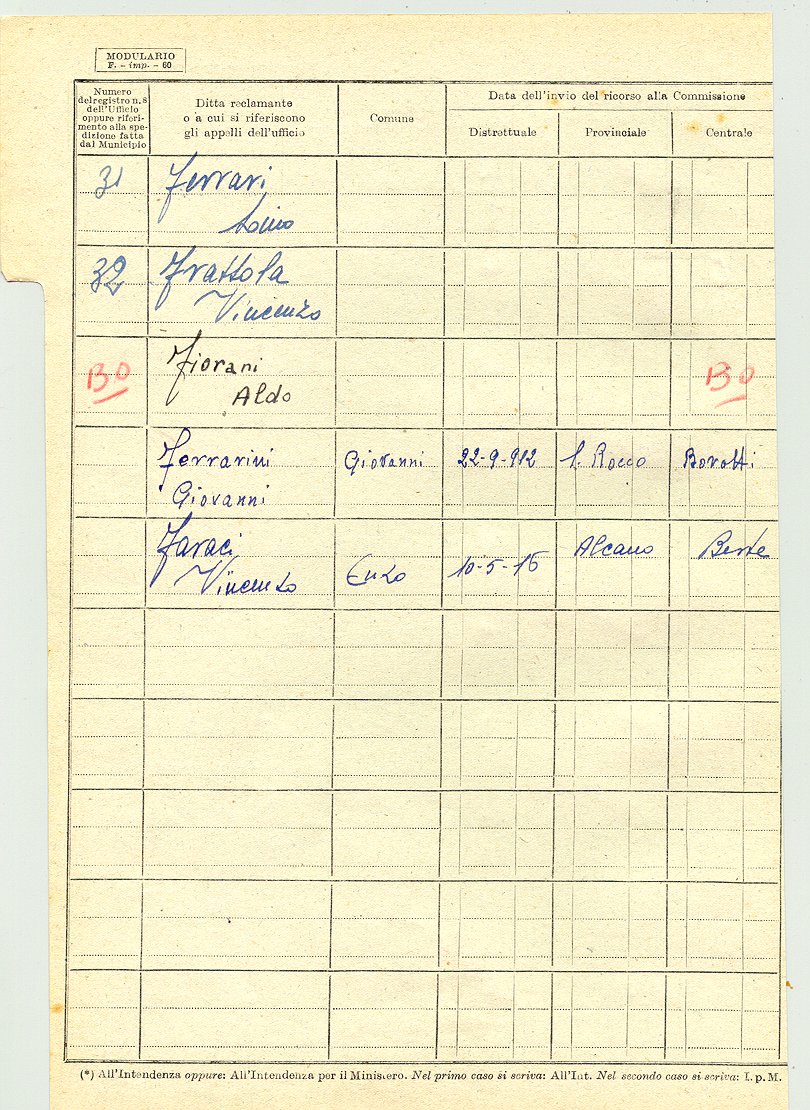 MODULARIO
F. - imp. - 60
Numero
del registro n. 8
dell'Ufficio
oppure riferi-
mento alla spe-
dizione fatta
dal Municipio
Ditta reclamante
o a cui si riferiscono
gli appelli dell'ufficio
Comune
Data dell'invio del ricorso alla Commissione
Distrettuale
Provinciale
Centrale
31 Ferrari
Lino
32 Frattola
Vincenzo
Fiorani
BO BO
Aldo
Ferrarini Giovanni 22-9-912 S. Rocco Borotti
Giovanni
Faraci Alcamo Berte
Vincenzo Enzo 10-5-16
(*) All'Intendenza oppure: All'Intendenza per il Ministero. Nel primo caso si scriva: All'Int. Nel secondo caso si scriva: I. p. M.